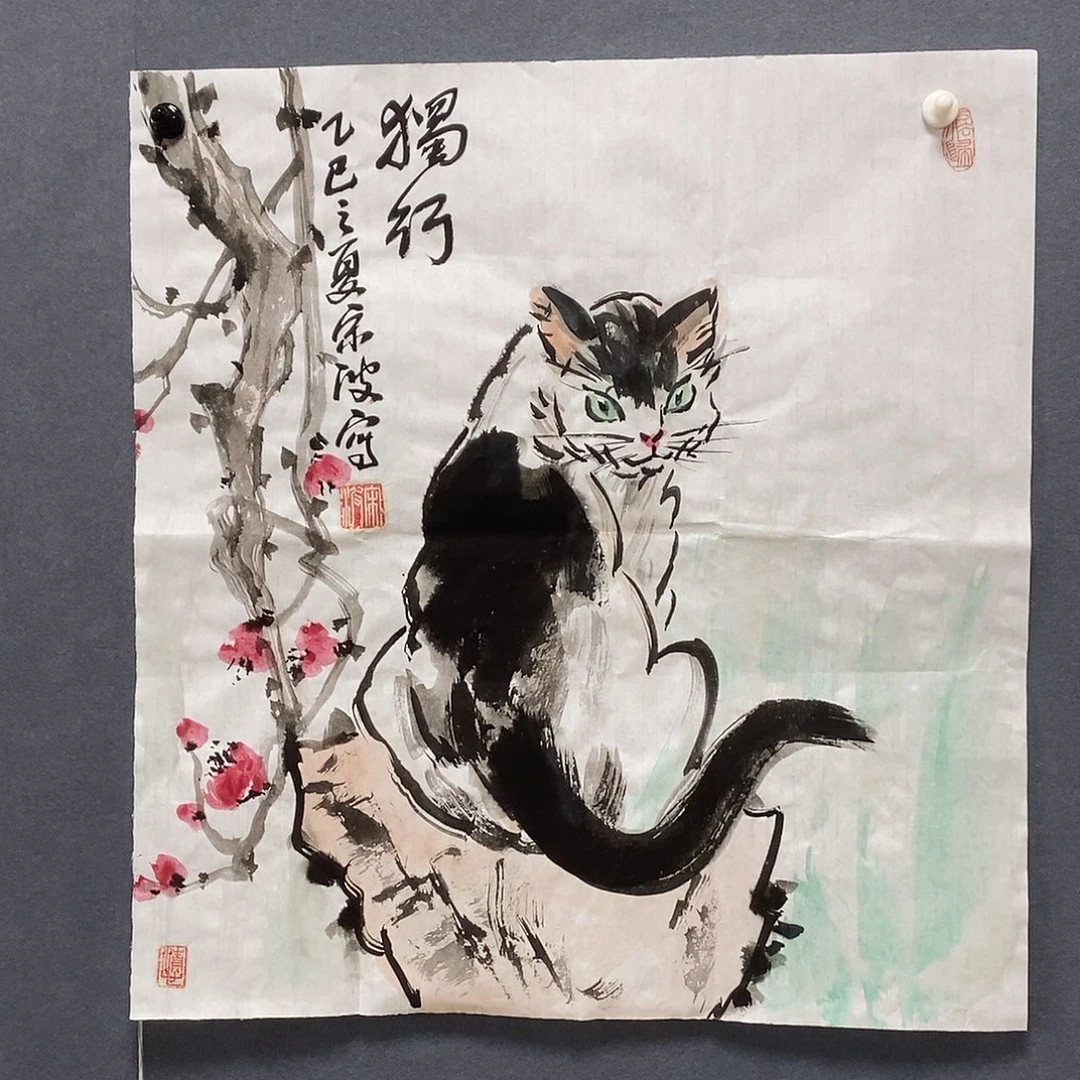 獨行
乙巳之夏宗波寫